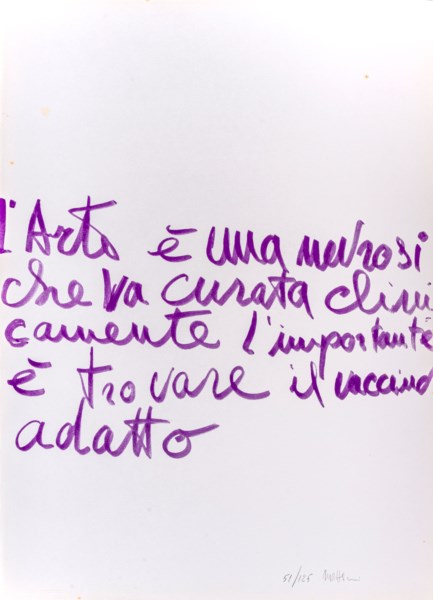 l'Arte è una nevrosi
che va curata clini
camente l'importante
è trovare il vaccino
adatto
51/125